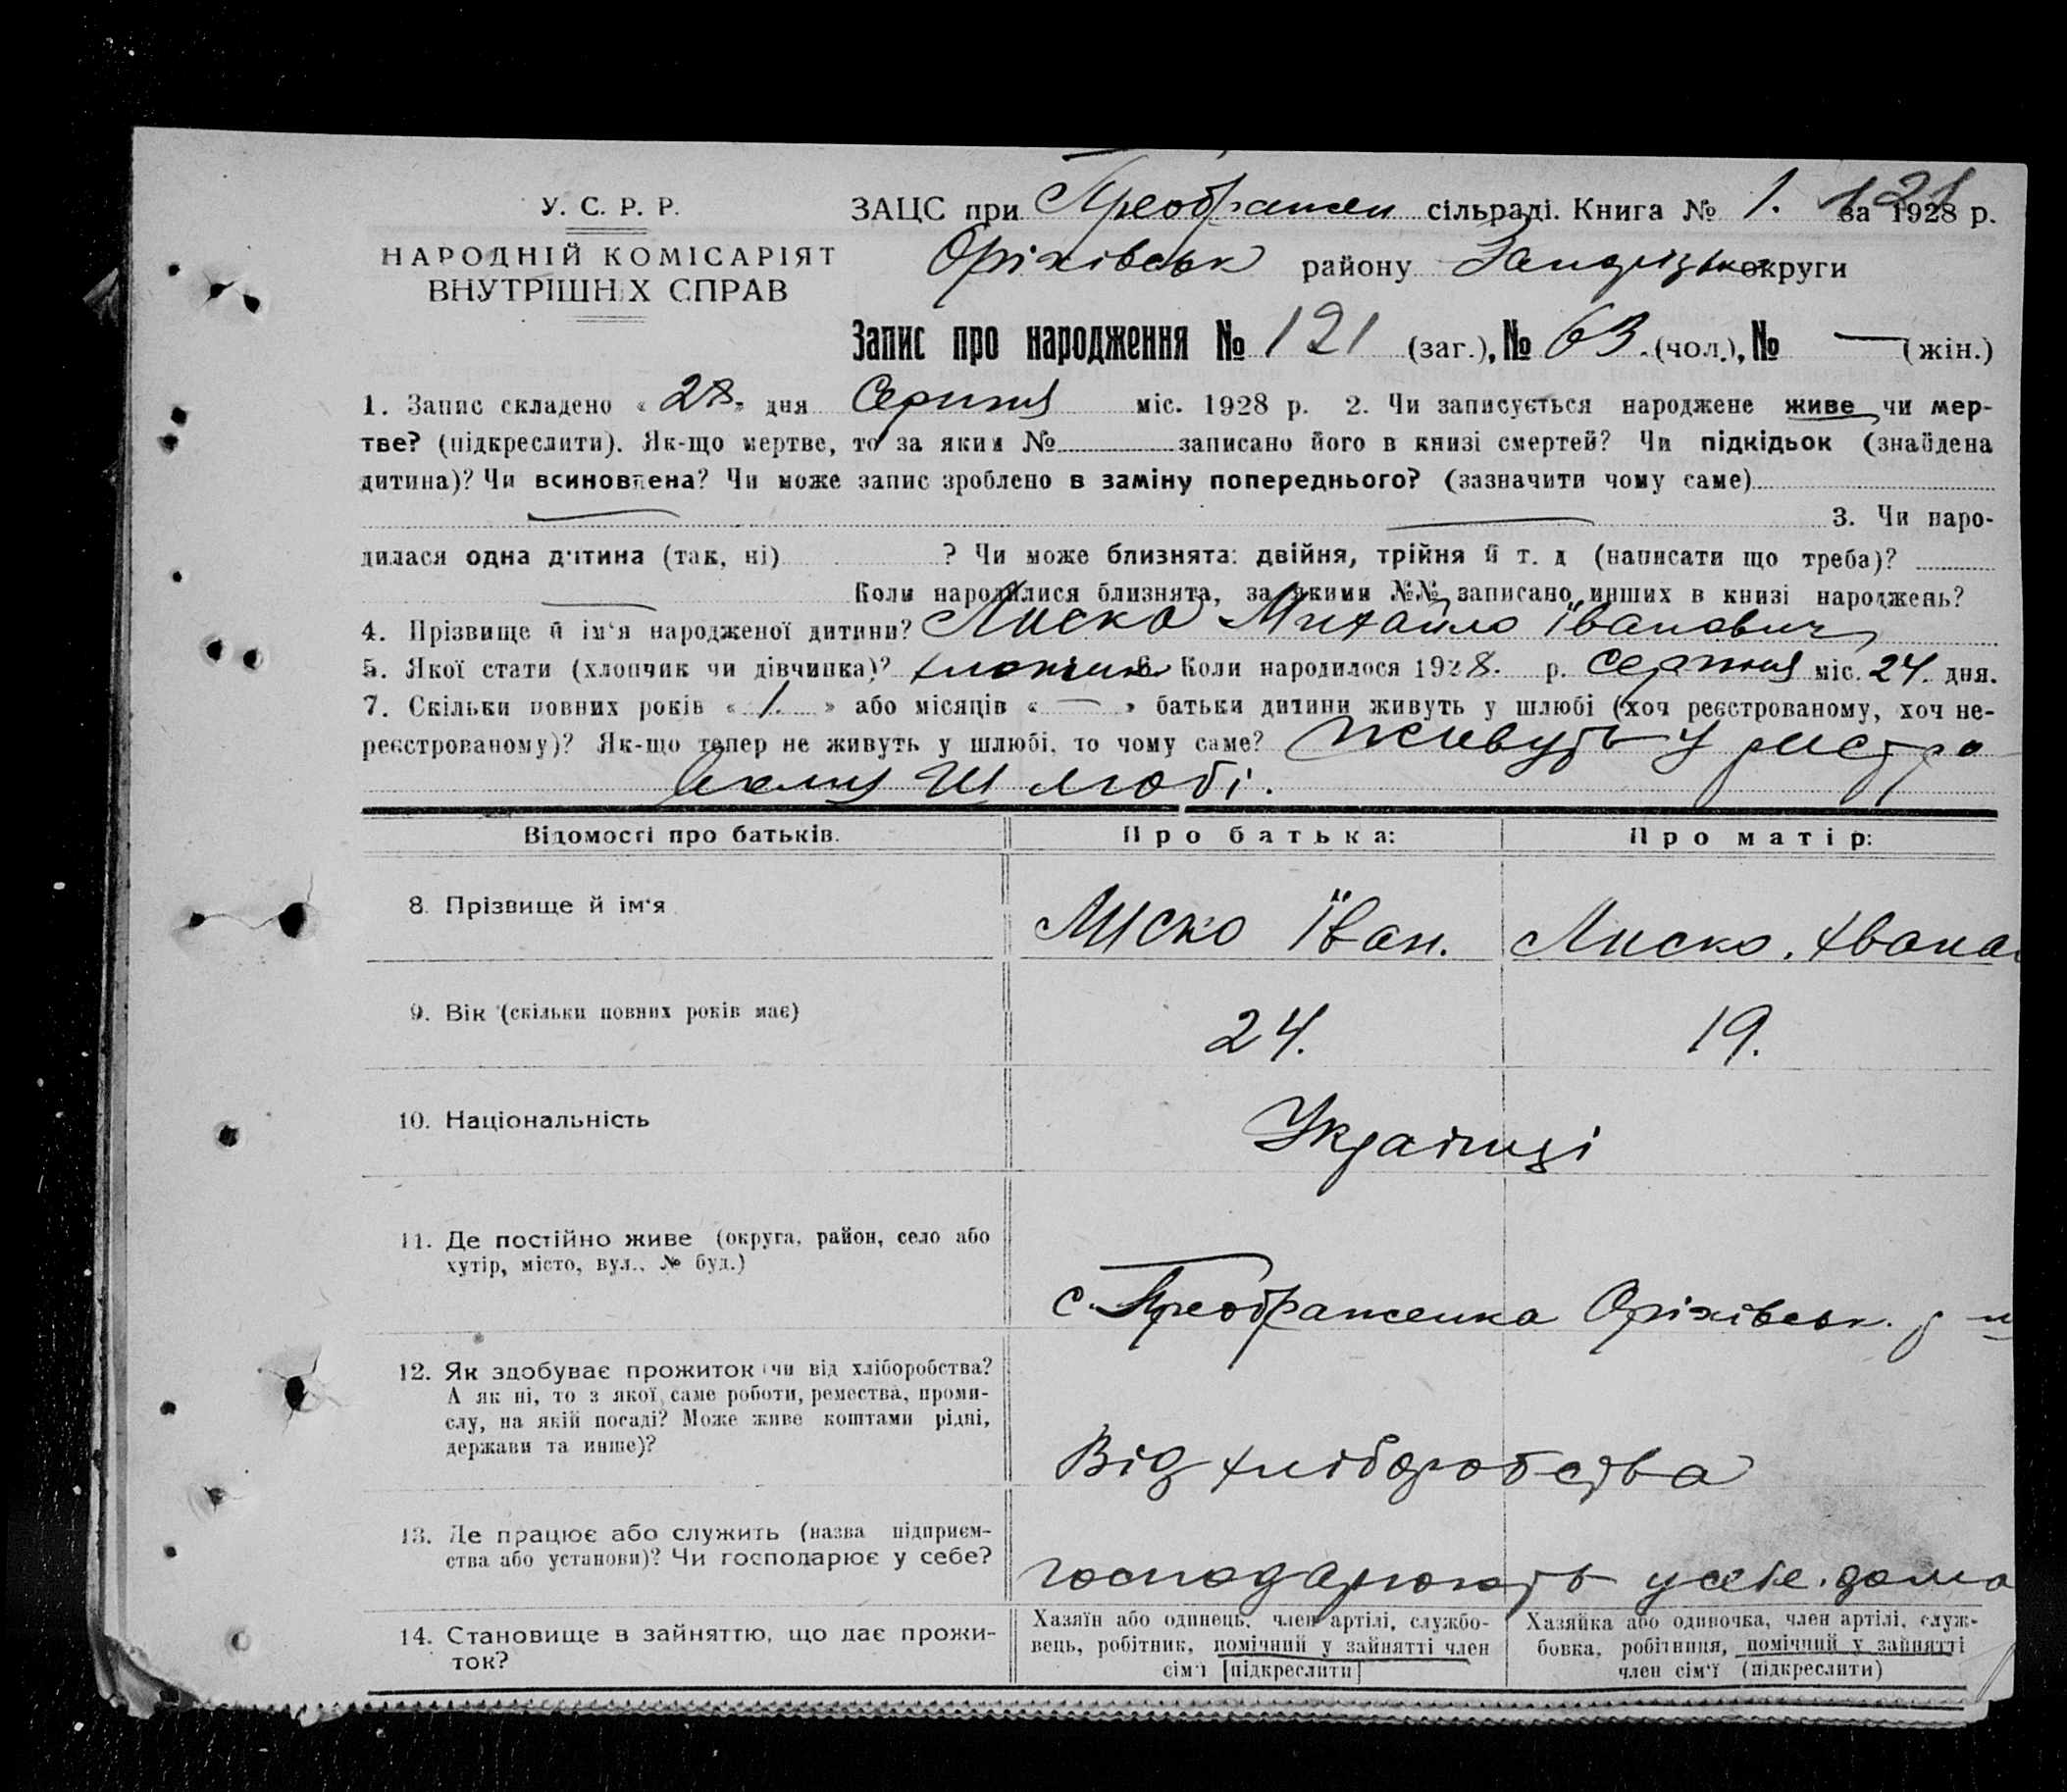 У. С. Р. Р.
НАРОДНІЙ КОМІСАРІЯТ
ВНУТРІШНІХ СПРАВ
121
ЗАЦС при Преображен сільраді. Книга № 1. за 1928 р.
Оріхівськ району Запорізьк округи
Запис про народження № 121 (заг.), № 63 (чол.), № — (жін.)
1. Запис складено « 28 » дня Серпня міс. 1928 р. 2. Чи записується народжене живе чи мер-
тве? (підкреслити). Як-що мертве, то за яким № записано його в книзі смертей? Чи підкідьок (знайдена
дитина)? Чи всиновлена? Чи може запис зроблено в заміну попереднього? (зазначити чому саме)
— — 3. Чи наро-
дилася одна дитина (так, ні) ? Чи може близнята: двійня, трійня й т. д (написати що треба)?
— Коли народилися близнята, за якими №№ записано инших в книзі народжень?
4. Прізвище й ім'я народженої дитини? Лиско Михайло Іванович
5. Якої стати (хлопчик чи дівчинка)? хлопчик 6. Коли народилося 1928. р. Серпня міс. 24. дня.
7. Скільки повних років « 1. » або місяців « — » батьки дитини живуть у шлюбі (хоч реєстрованому, хоч не-
реєстрованому)? Як-що тепер не живуть у шлюбі, то чому саме? живуть у рестро
ваному шлюбі.
Відомості про батьків. Про батька: Про матір:
8. Прізвище й ім'я Лиско Їван. Лиско.
9. Вік (скільки повних років має) 24. 19.
10. Національність Українці
11. Де постійно живе (округа, район, село або
хутір, місто, вул., № буд.)
с. Преображенка Оріхівськ. р
12. Як здобуває прожиток чи від хліборобства?
А як ні, то з якої саме роботи, ремества, проми-
слу, на якій посаді? Може живе коштами рідні,
держави та инше)?
Від хліборобства
13. Де працює або служить (назва підприєм-
ства або установи)? Чи господарює у себе?
господарюють у себе. дома
14. Становище в зайняттю, що дає прожи-
ток?
Хазяїн або одинець, член артілі, службо-
вець, робітник, помічний у зайнятті член
сім'ї [підкреслити]
Хазяйка або одиночка, член артілі, служ-
бовка, робітниця, помічний у зайнятті
член сім'ї (підкреслити)